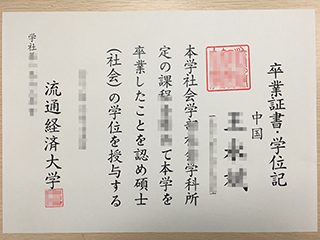 卒業証書・学位記
中国
本学社会学部 会学科所
定の課程 て本学を
卒業したことを認め碩士
(社会)の学位を授与する
流通経済大学
学社